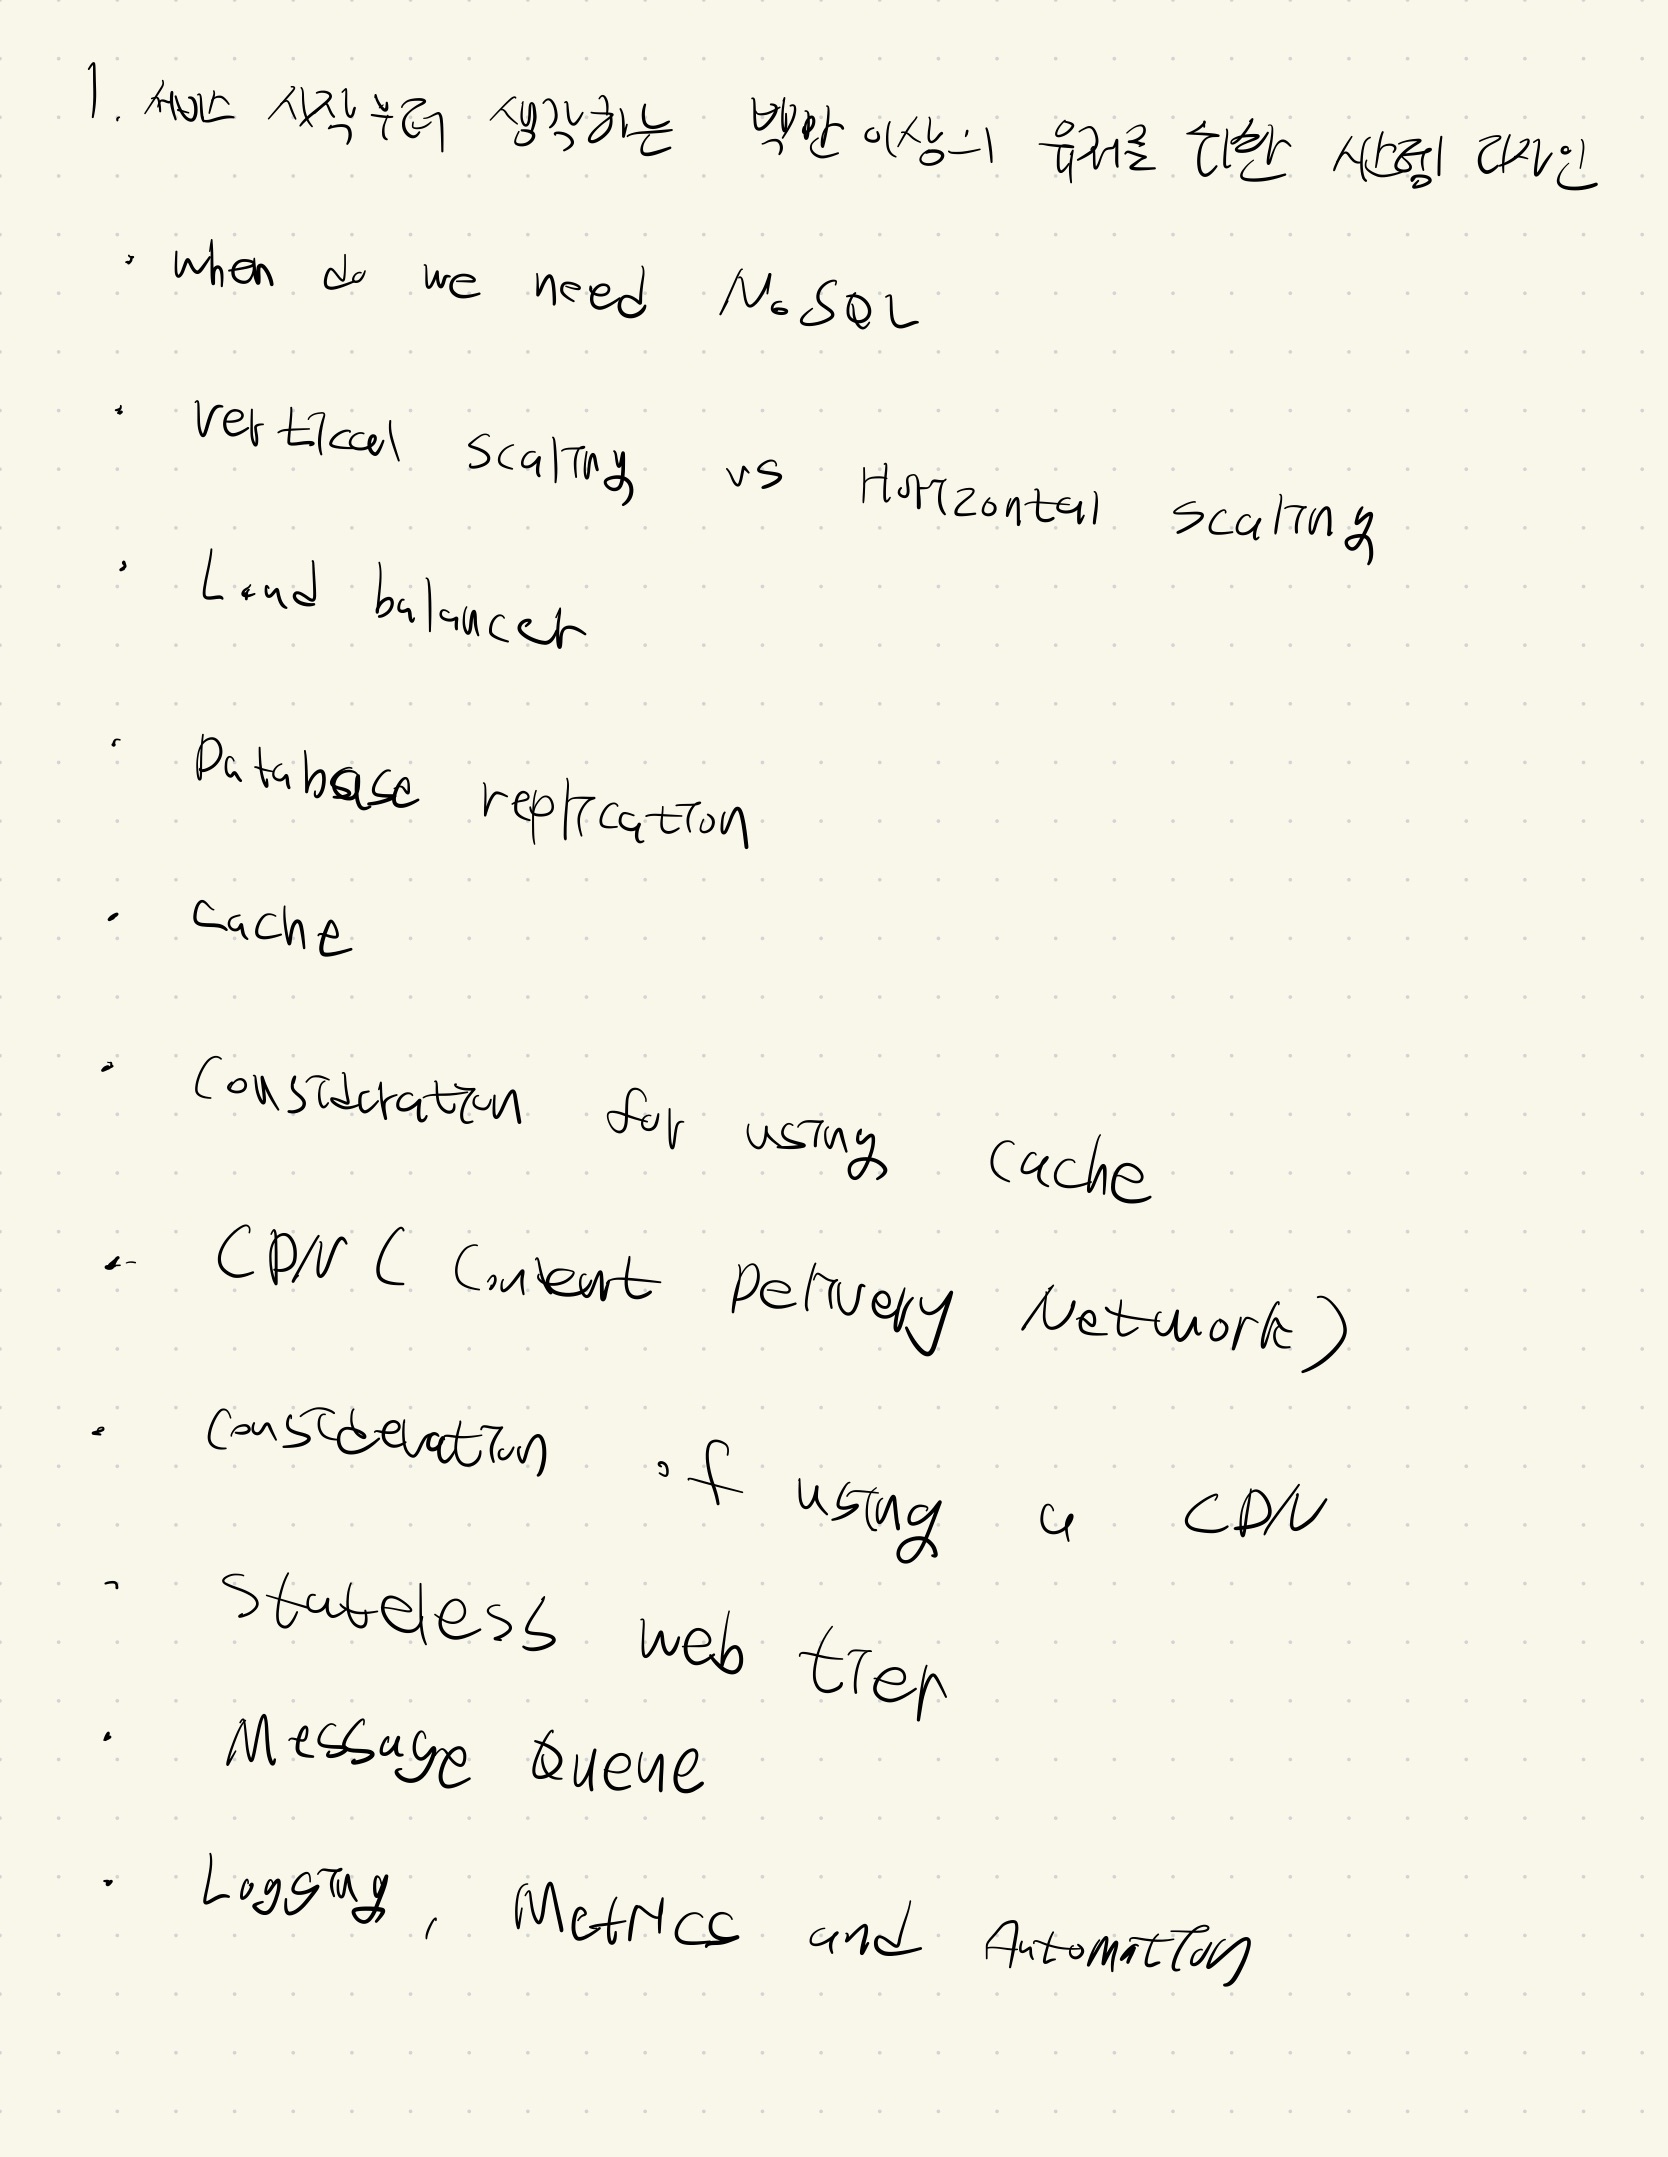 1. 서비스 시작부터 생각하는 백만 이상의 유저를 위한 시스템 디자인
· when do we need NoSQL
· vertical scaling vs Horizontal scaling
· Load balancer
· Database replication
· cache
· Consideration for using cache
· CDN ( Content Delivery Network)
· consideration of using a CDN
· stateless web tier
· Message Queue
· Logging, Metrics and Automation